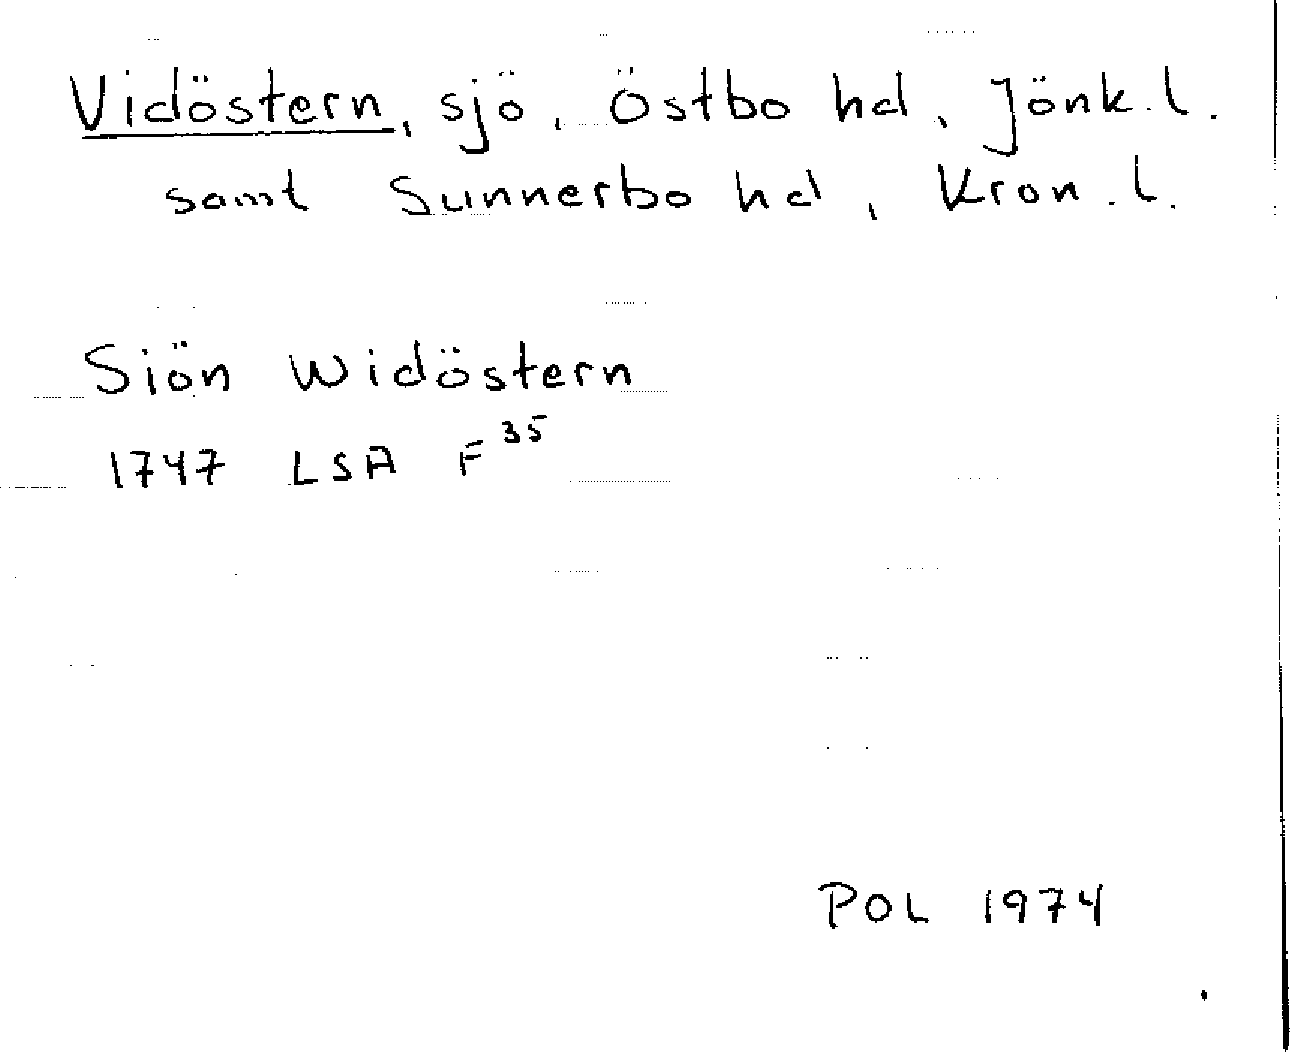 Vidöstern, sjö, Östbo hd, Jönk.l.
samt Sunnerbo hd, Kron.l.
Siön Widöstern
1747 LSA F 35
POL 1974